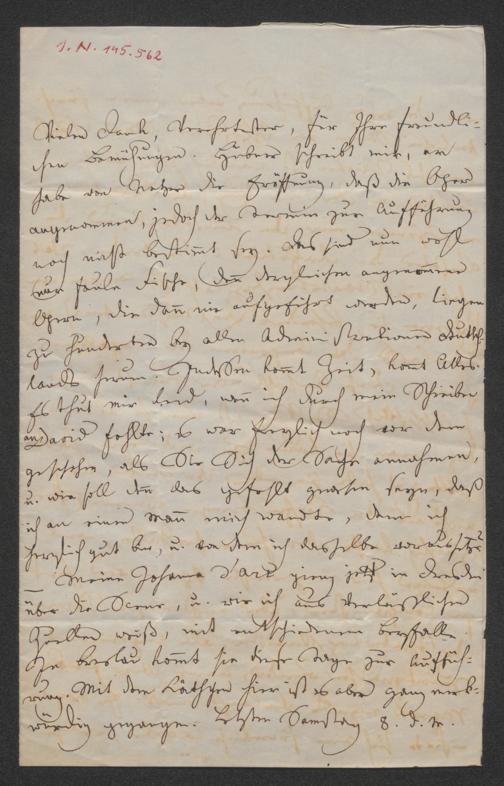 I. N. 145.562
Vielen Dank, Verehrtester, für Ihre freundli-
chen Bemühungen. Huber schreibt mir, er
habe von Netzer die Eröffnung, daß die Oper
angenommen, jedoch der Termin zur Aufführung
noch nicht bestimmt sey. Das sind nun wohl
nur faule Fische, denn dergleichen angenommene
Opern, die dann nie aufgeführt werden, liegen
zu Hunderten bey allen Administrationen Deutsch-
lands herum. Indessen kommt Zeit, kommt Alles.
Es thut mir leid, wenn ich durch mein Schreiben
an David fehlte; es war freylich noch vor dem
geschehen, als Sie Sich der Sache annahmen,
u. wie soll denn das gefehlt gewesen seyn, daß
ich an einen Mann mich wandte, dem ich
herzlich gut bin, u. von dem ich dasselbe voraussetze.
Meine Johanna d'Arc gieng jetzt in Dresden
über die Scene, u. wie ich aus verläßlichen
Quellen weiß, mit entschiedenem Beyfalle.
In Breslau kommt sie dieser Tage zur Auffüh-
rung. Mit dem Käthchen hier ist es aber ganz merk-
würdig gegangen. Letzten Samstag 8. d. M.